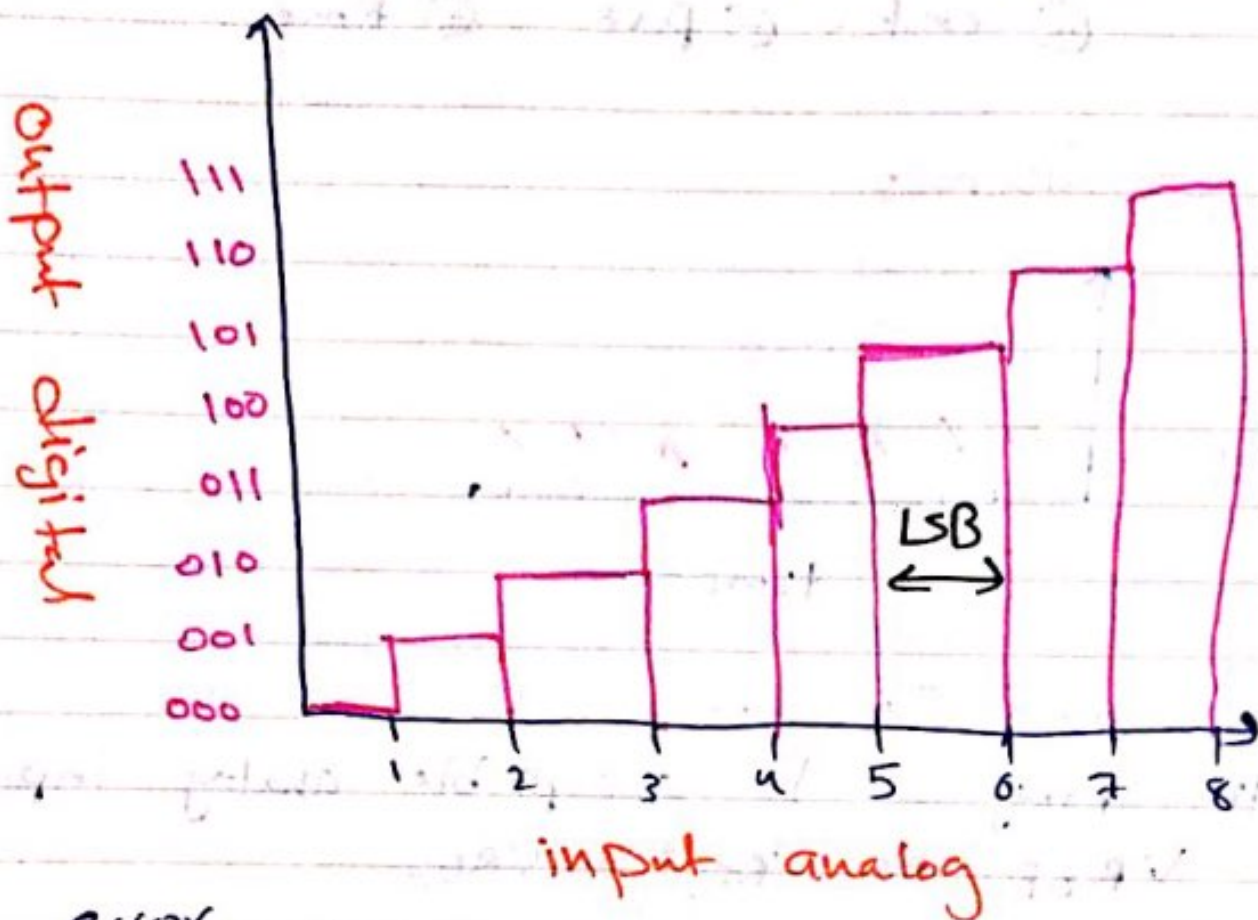 output digital
111
110
101
100
011
010
001
000
LSB
1 2 3 4 5 6 7 8
input analog